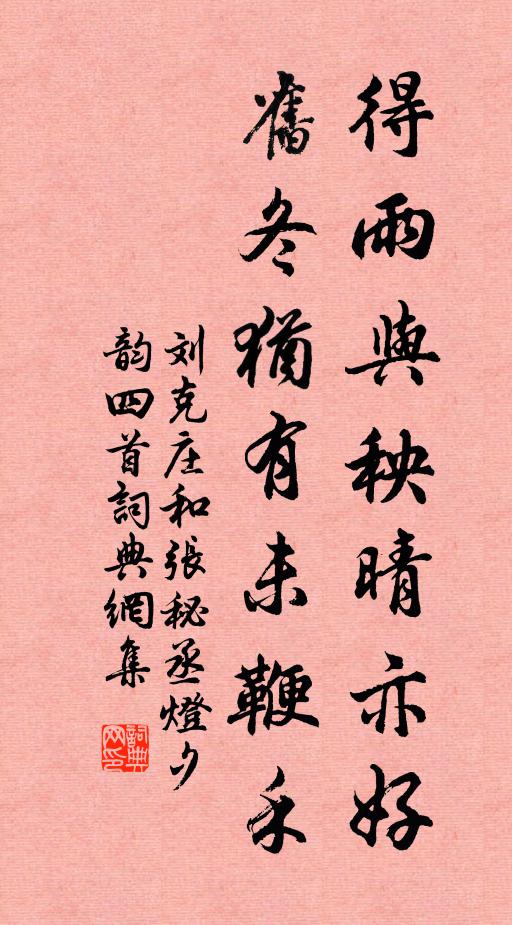 得雨與秧晴亦好
舊冬猶有未鞭禾
刘克庄和張秘丞燈夕
韵四首詞典網集
詞典
网印